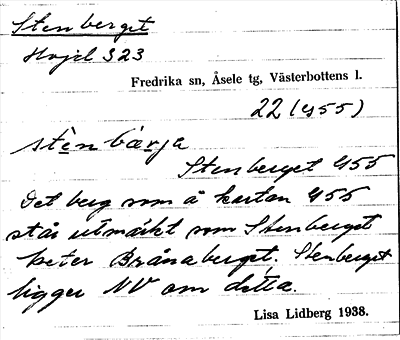 Stenberget
Höjd 523
Fredrika sn, Åsele tg, Västerbottens l.
22 (455)
stèn bærja
Stenberget 455
Det berg som å kartan 455
står utmärkt som Stenberget
heter Brånaberget. Stenberget
ligger NV om detta.
Lisa Lidberg 1938.